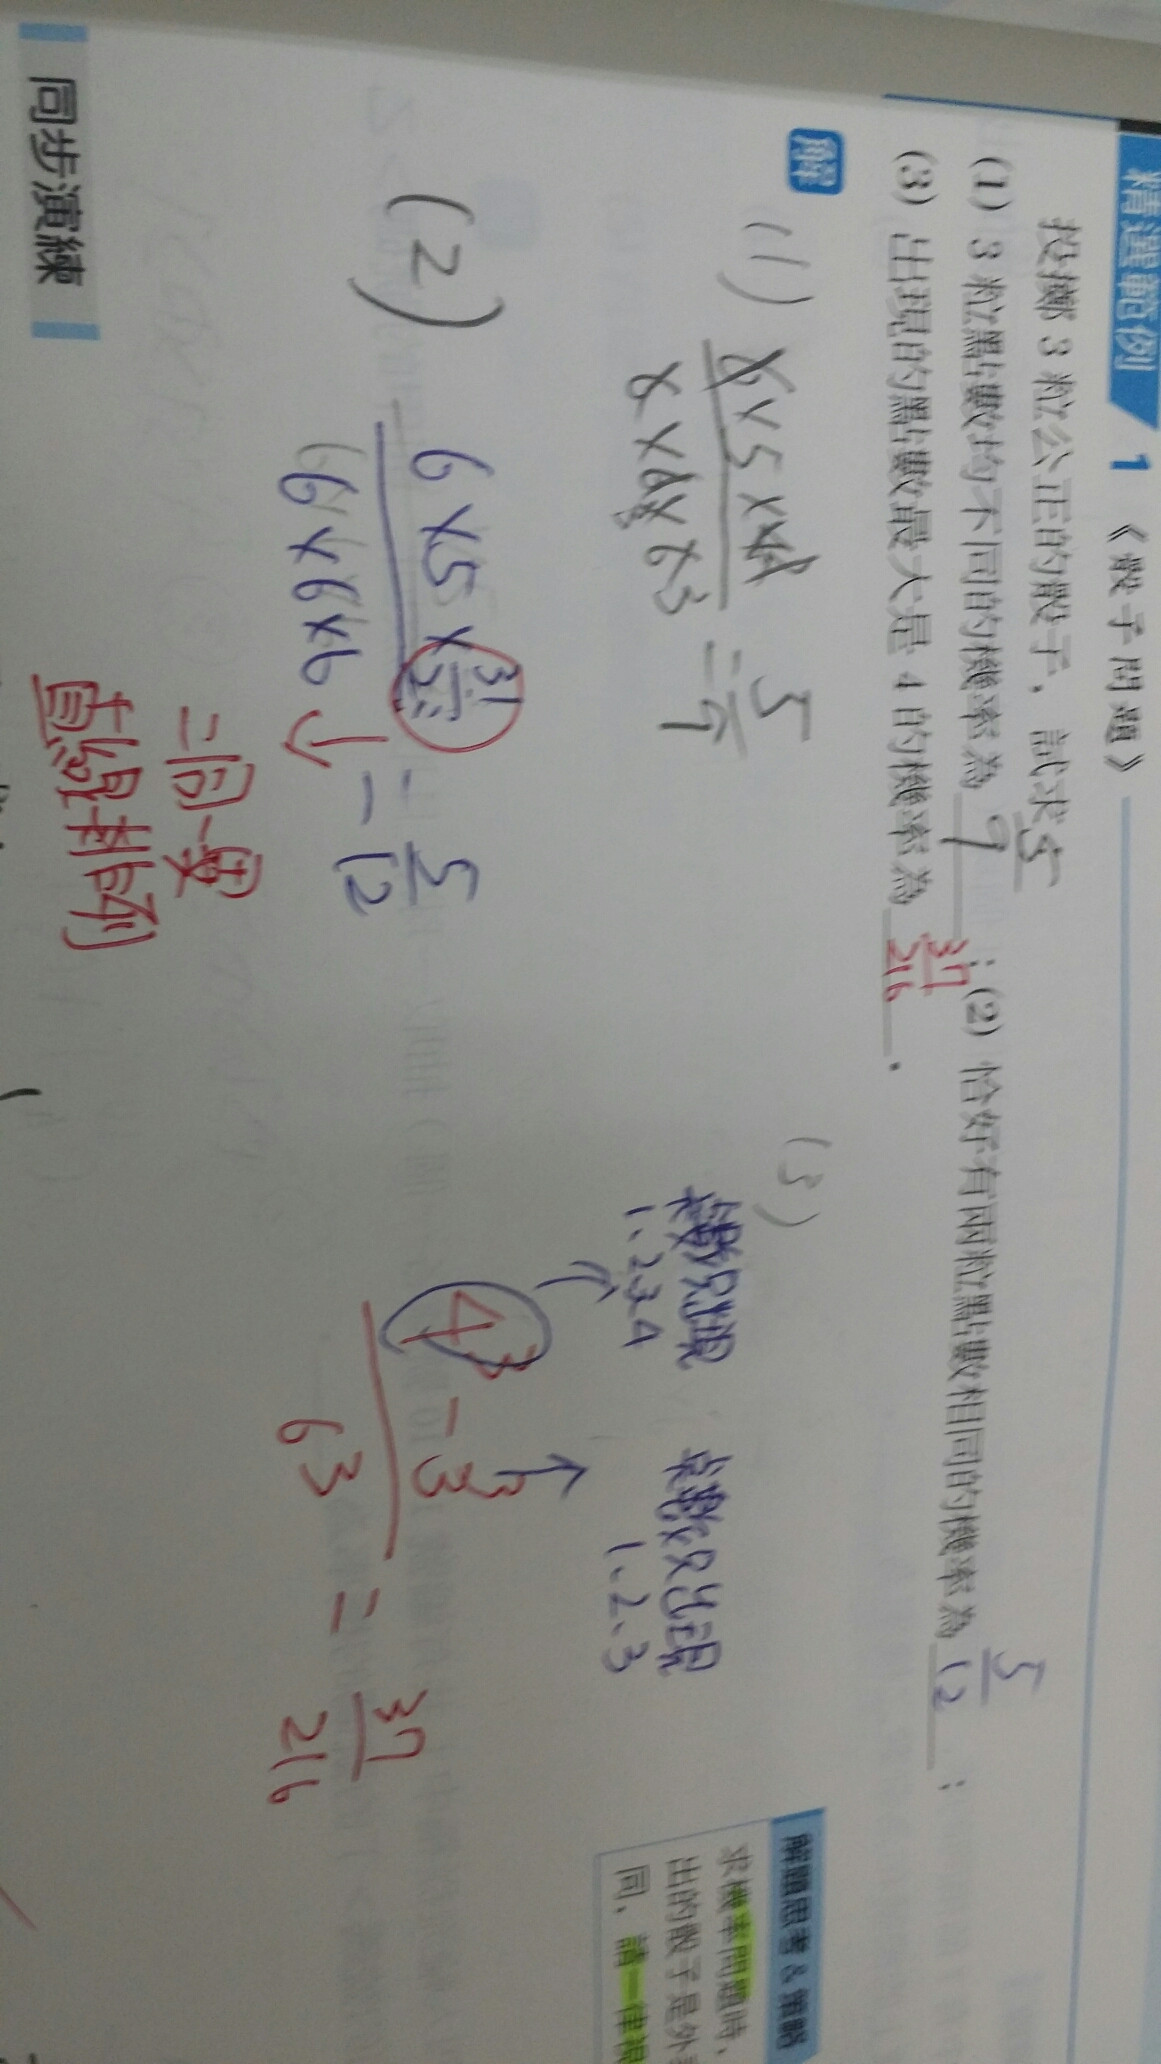 精選範例 1 《骰子問題》
投擲 3 粒公正的骰子，試求
(1) 3 粒點數均不同的機率為 5/9 ；(2) 恰好有兩粒點數相同的機率為 5/12 ；
(3) 出現的點數最大是 4 的機率為 37/216 .
解
(1) 6×5×4 / 6×6×6 3 = 5/9
(2) 6×5× 3!/2! / 6×6×6 = 5/12
二同一異
直線排列
(3)
點數出現
1、2、3、4
點數出現
1、2、3
4³-3³ / 6³ = 37/216
解題思考 & 策略
求機率問題時，
出的骰子是外
同，請一律視
同步演練